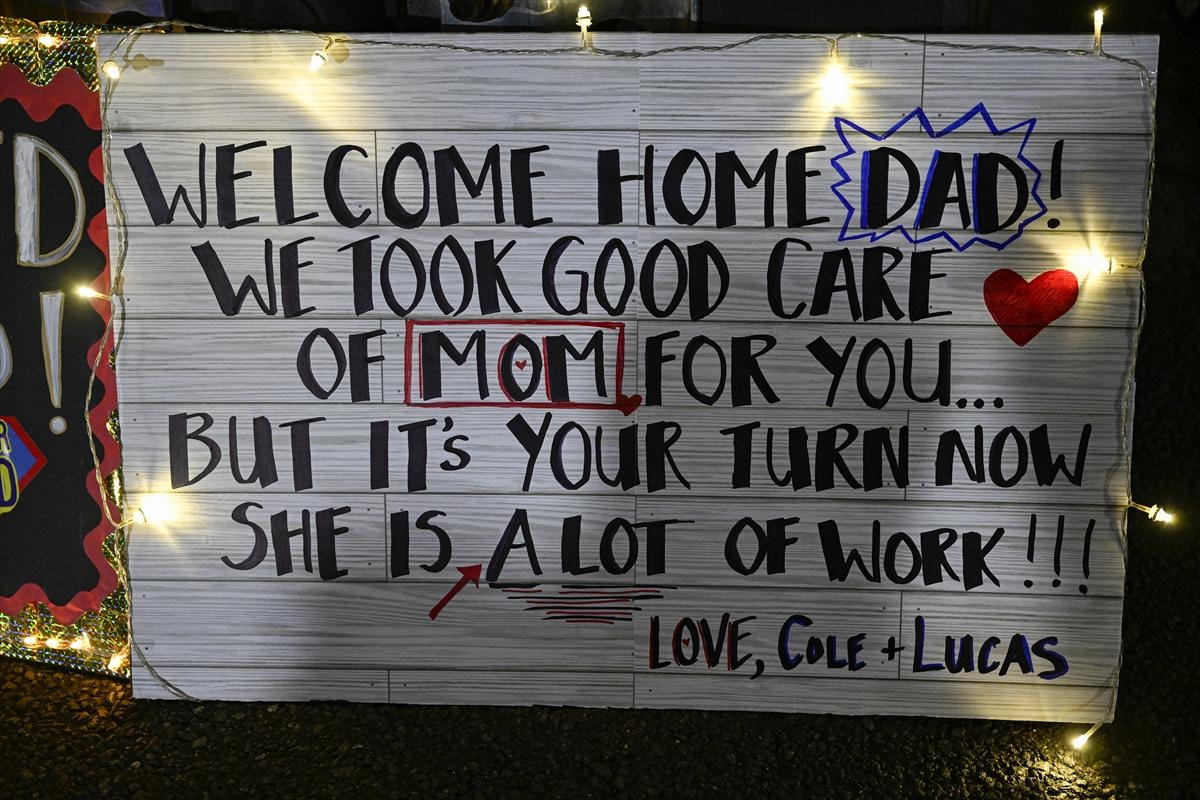 WELCOME HOME DAD!
WE TOOK GOOD CARE
OF MOM FOR YOU...
BUT IT's YOUR TURN NOW
SHE IS A LOT OF WORK!!!
LOVE, COLE + LUCAS